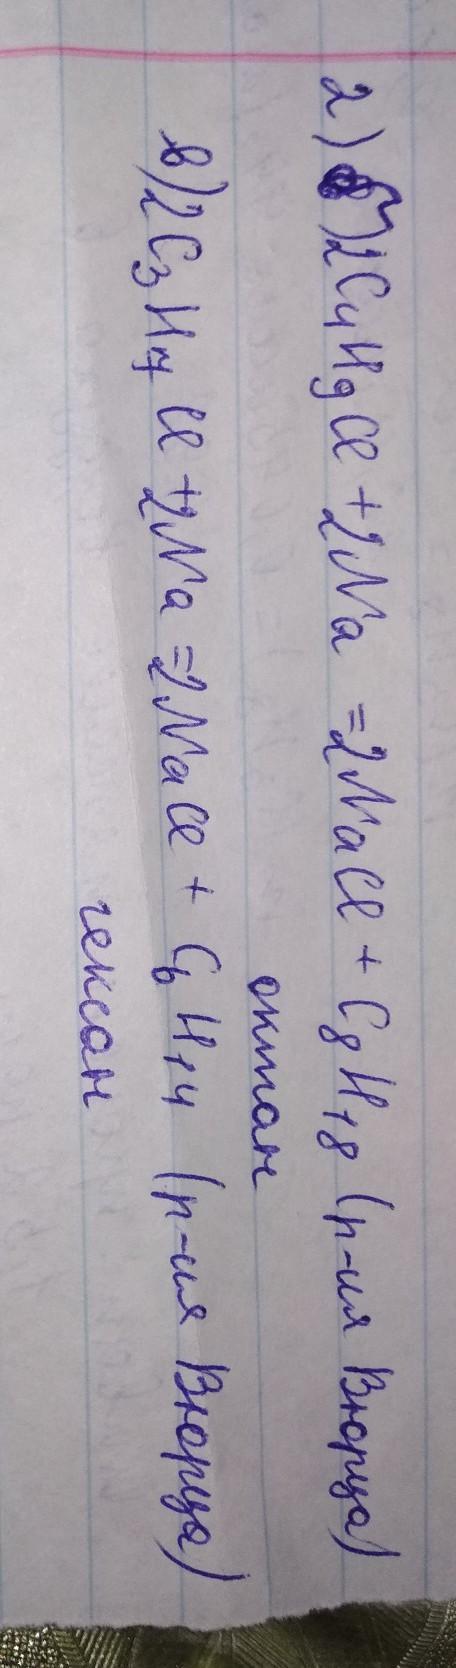 2) б) 2C₄H₉Cl + 2Na = 2NaCl + C₈H₁₈ (р-ия Вюрца)
октан
в) 2C₃H₇Cl + 2Na = 2NaCl + C₆H₁₄ (р-ия Вюрца)
гексан